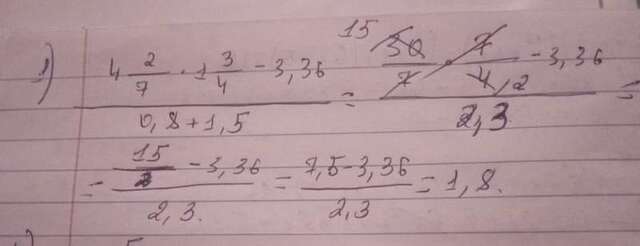 1) (4 2/7 · 1 3/4 - 3,36) / (0,8 + 1,5) = (15 30/7 · 7/4 2 - 3,36) / 2,3 =
= (15/2 - 3,36) / 2,3. = (7,5 - 3,36) / 2,3 = 1,8.